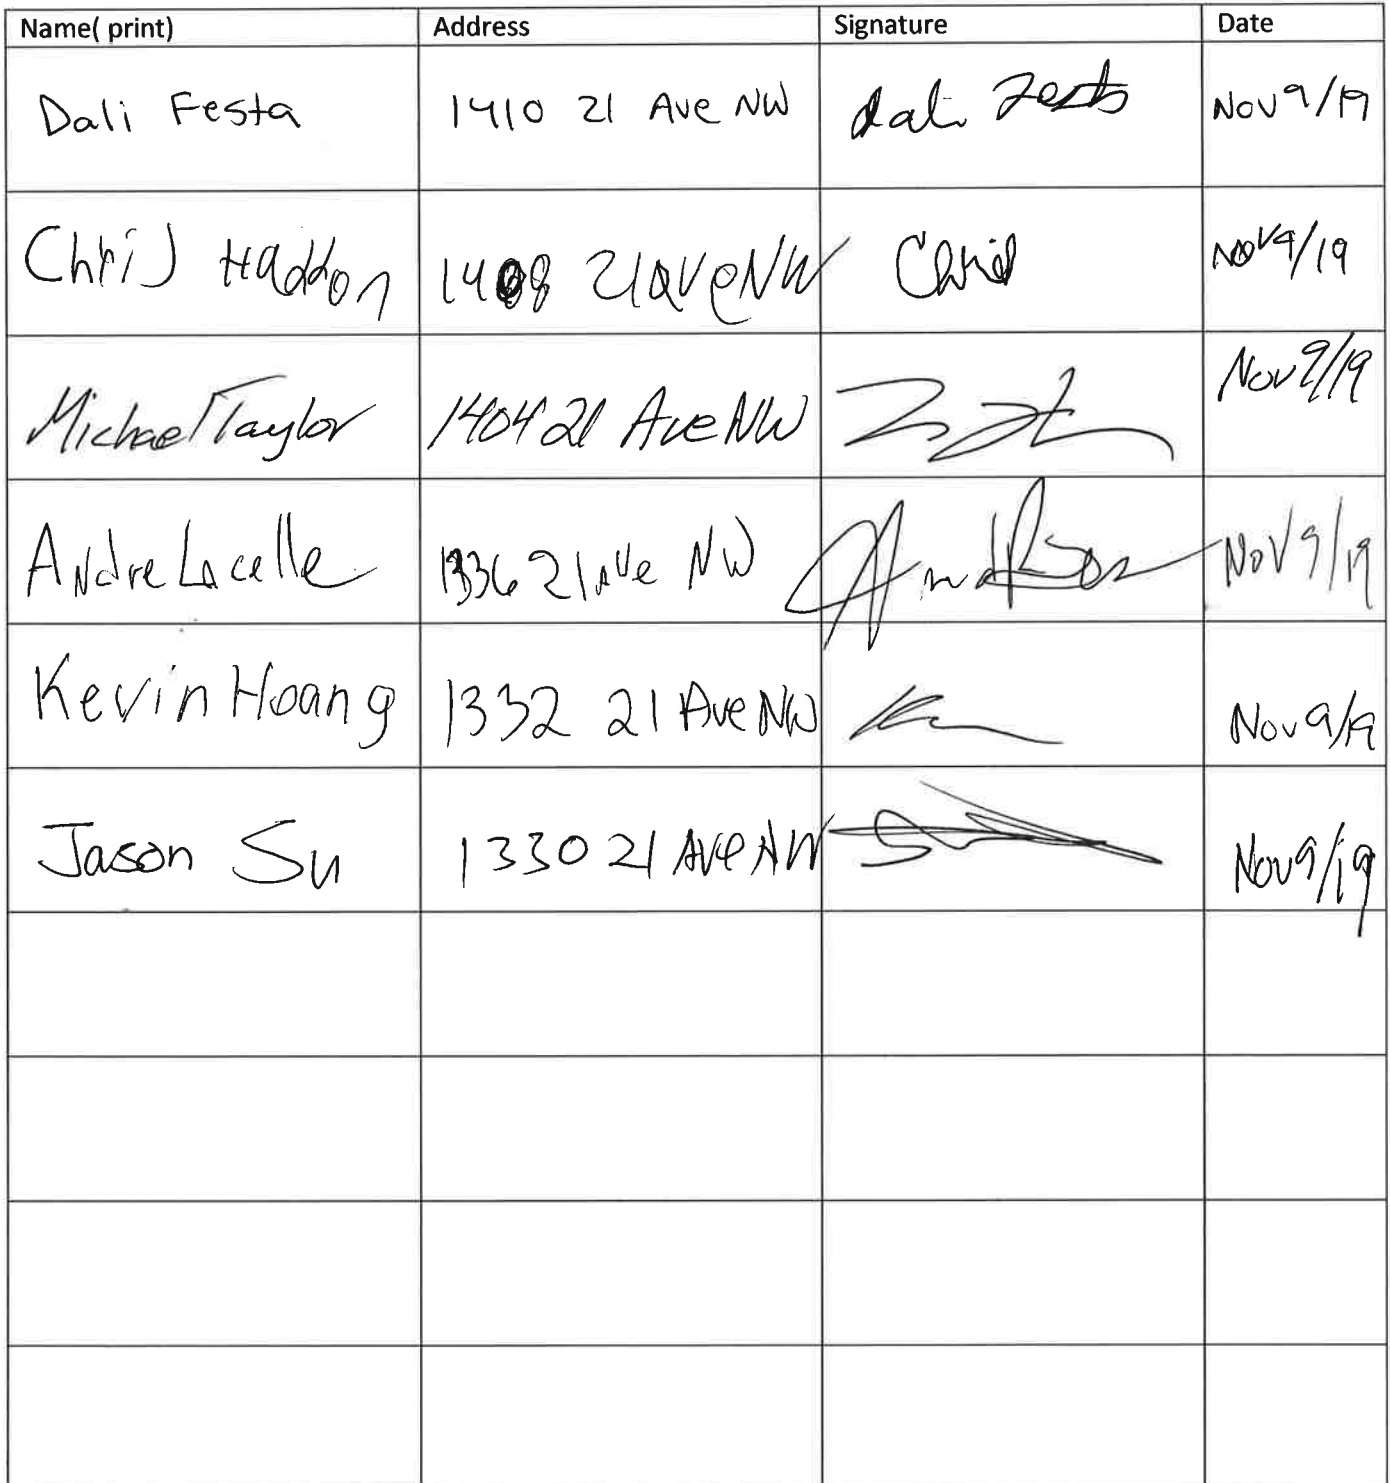 Name( print) Address Signature Date
Dali Festa 1410 21 Ave NW Dali Festa Nov 9/19
Chris Haddon 1408 21 Ave NW Chris Nov 9/19
Michael Taylor 1404 21 Ave NW Nov 9/19
Andre Lacelle 1336 21 Ave NW Nov 9/19
Kevin Hoang 1332 21 Ave NW Nov 9/19
Jason Su 1330 21 Ave NW Nov 9/19